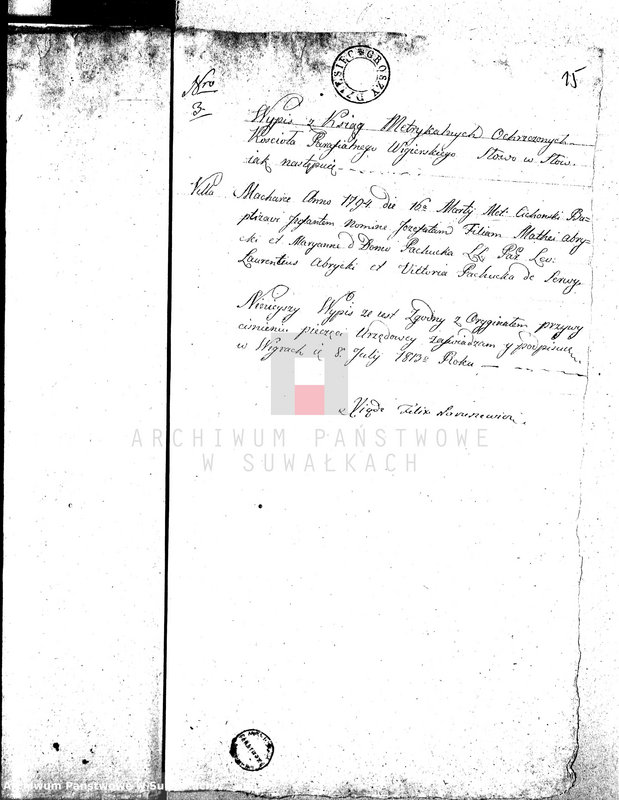 DZIESIĘC GROSZY
15
Nro
3.
Wypis z Ksiąg Metrykalnych Ochrzczonych
Kościoła Parafialnego Wigierskiego Słowo w Słow.
iak następuie
Villa Macharce Anno 1794 die 16a Martij Met: Cichonski Ba-
ptizavi Jnfantem nomine Jozefatam Filiam Mathei Abry-
cki et Maryanne d Domo Pachucka LL. Pat. Lev:
Laurentius Abrycki et Vittoria Pachucka de Serwy.
Ninieyszy Wypis ze iest Zgodny z Oryginałem przywy
cisnieniu pieczęci Urzędowey zaświadzam y podpisuię
w Wigrach d. 8. July 1813o Roku
Xiądz Felix
ARCHIWUM PAŃSTWOWE
W SUWAŁKACH
Archiwum Państwowe w Su